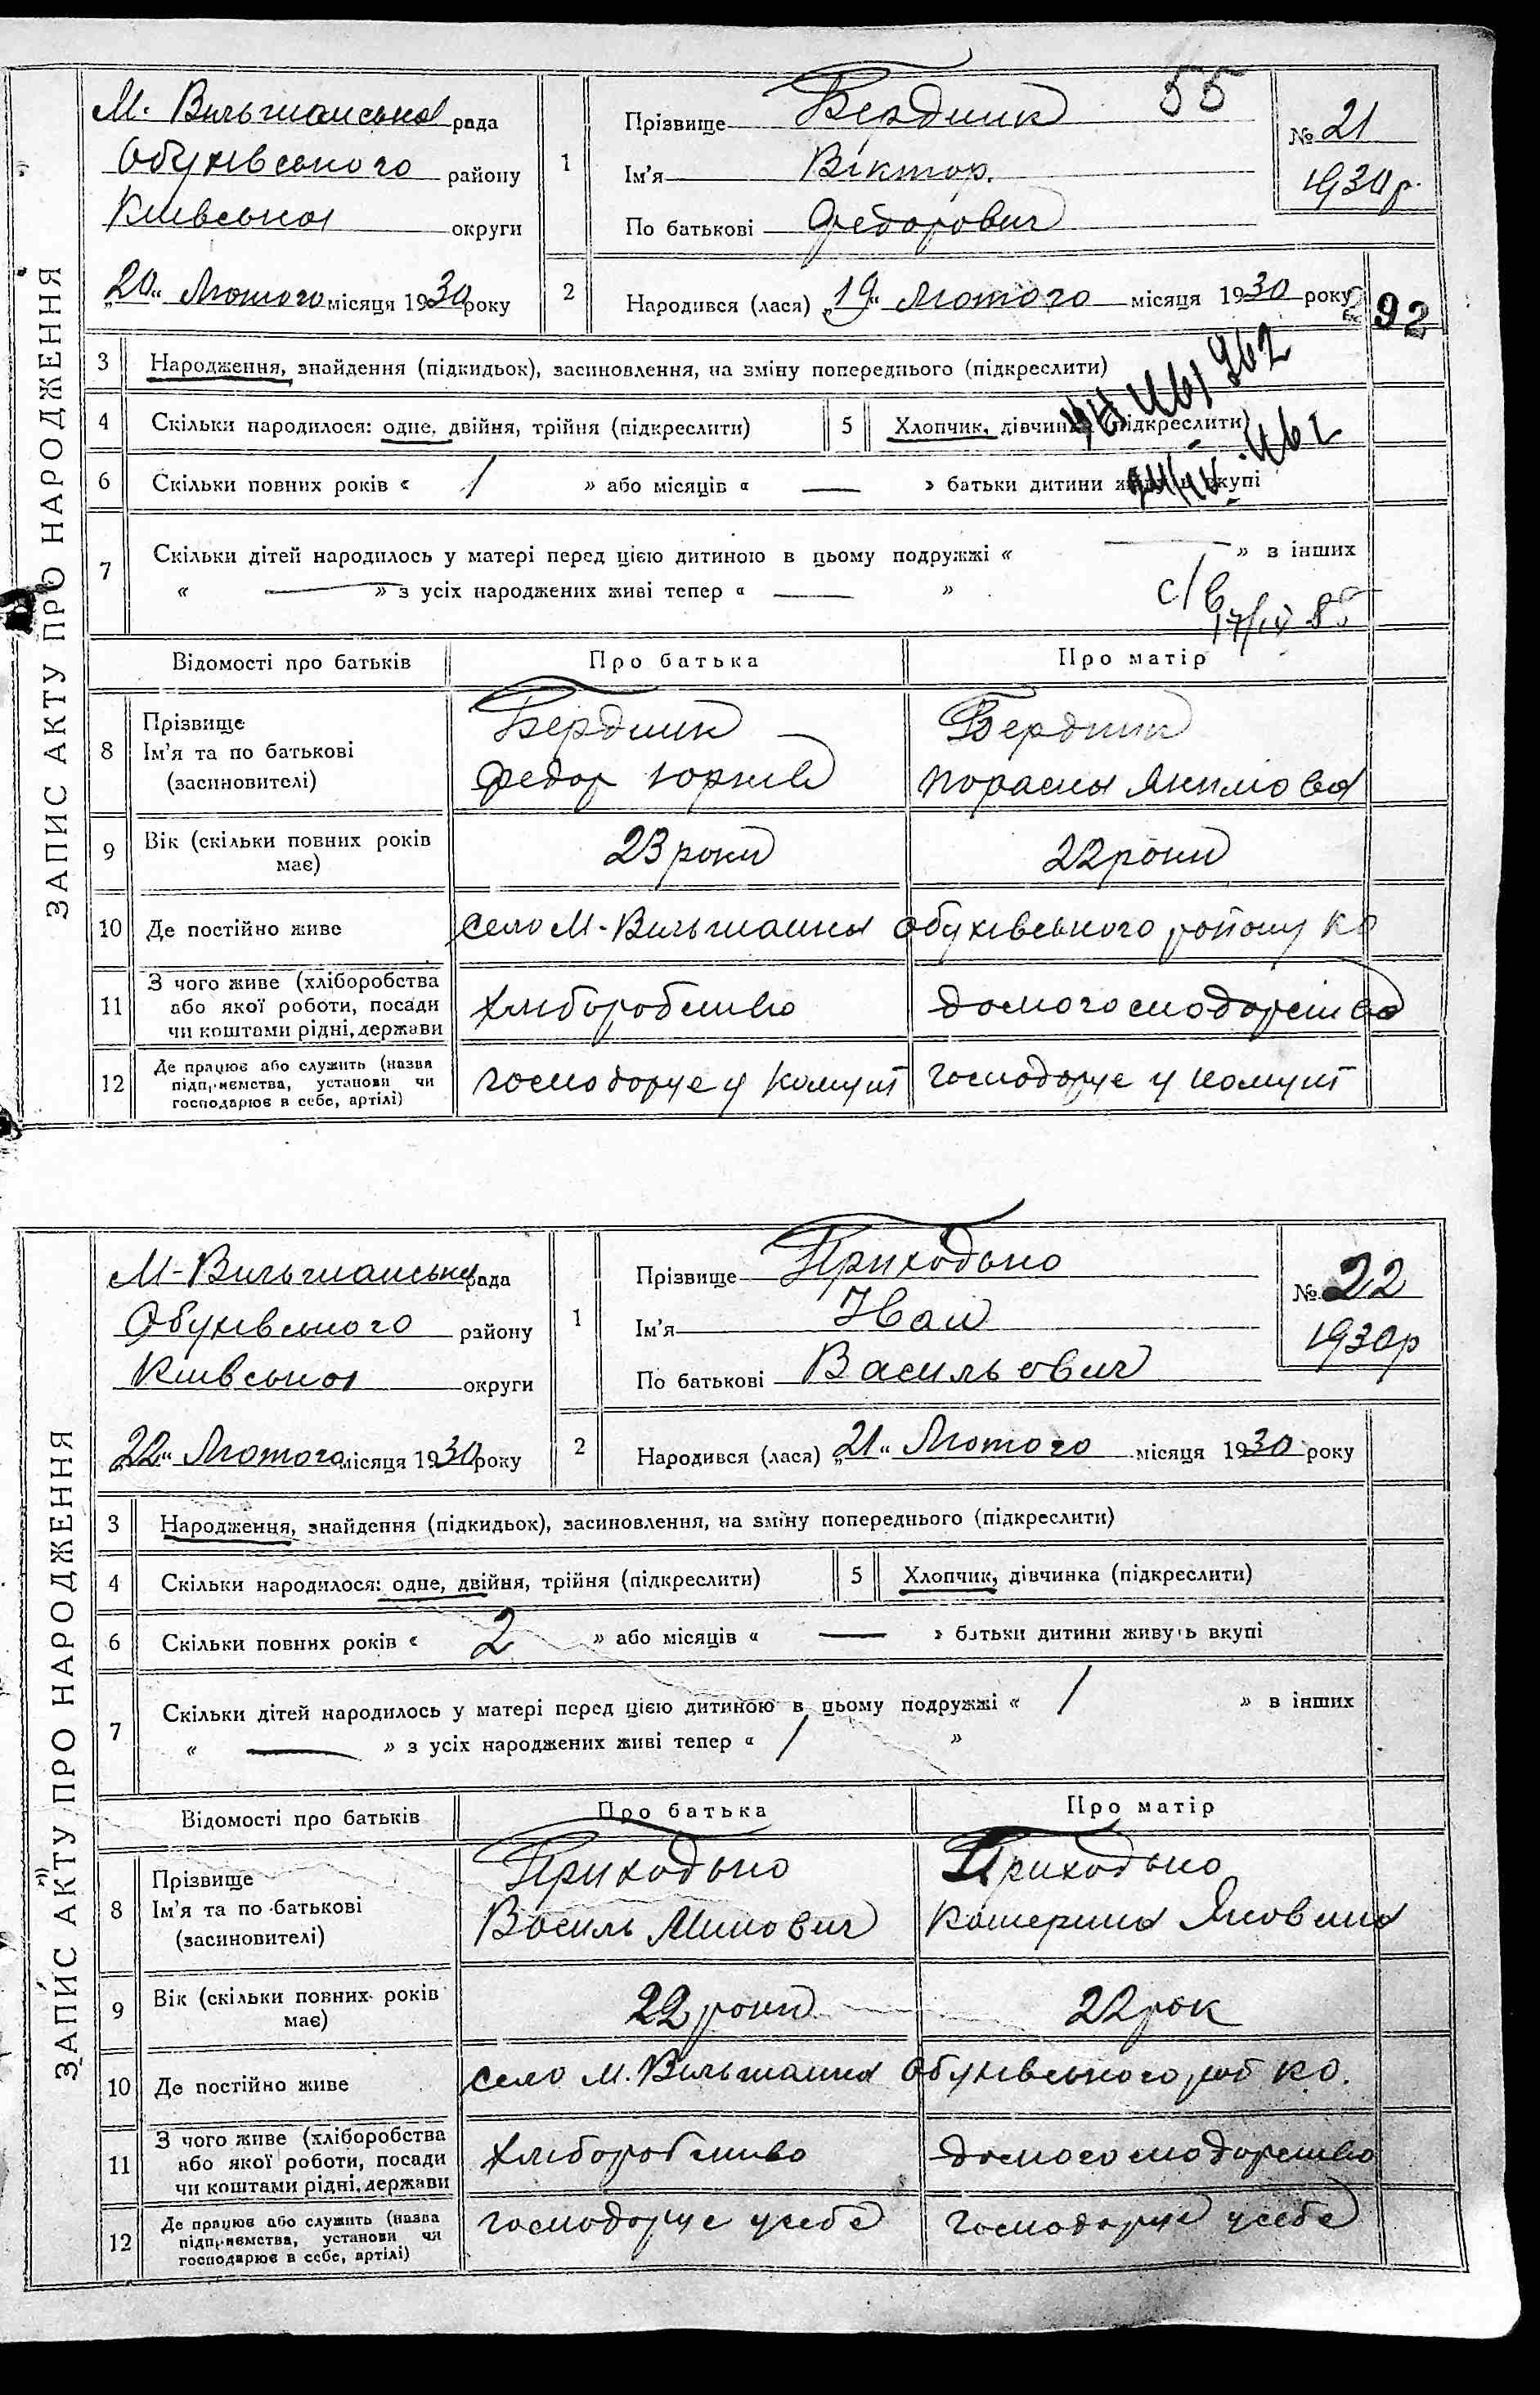 ЗАПИС АКТУ ПРО НАРОДЖЕННЯ
М. Вильшанська рада
Обухівського району
Київська округи
„20“ Лютого місяця 1930 року
1
Прізвище Бердник
55
Ім'я Віктор.
По батькові Федорович
№ 21
1930 р.
2
Народився (лася) „19“ Лютого місяця 1930 року
92
3 Народження, знайдення (підкидьок), засиновлення, на зміну попереднього (підкреслити)
4 Скільки народилося: одне, двійня, трійня (підкреслити)
5 Хлопчик, дівчинка (підкреслити)
6 Скільки повних років « 1 » або місяців « — » батьки дитини живуть вкупі
7 Скільки дітей народилось у матері перед цією дитиною в цьому подружжі « — » в інших
« — » з усіх народжених живі тепер « — »
с/в
17/IV 85
Відомості про батьків
Про батька
Про матір
8
Прізвище
Ім'я та по батькові
(засиновителі)
Бердник
Федор Юрків
Бердник
Параска Якимова
9
Вік (скільки повних років
має)
23 роки
22 роки
10 Де постійно живе
село М-Вильшанка Обухівського району КО
11
З чого живе (хліборобства
або якої роботи, посади
чи коштами рідні, держави
Хліборобство
домогосподарство
12
Де працює або служить (назва
підприємства, установи чи
господарює в себе, артілі)
господарує у комуні
господарує у комуні
ЗАПИС АКТУ ПРО НАРОДЖЕННЯ
М-Вильшанська рада
Обухівського району
Київська округи
„22“ Лютого місяця 1930 року
1
Прізвище Приходько
Ім'я Іван
По батькові Васильович
№ 22
1930 р
2
Народився (лася) „21“ Лютого місяця 1930 року
3 Народження, знайдення (підкидьок), засиновлення, на зміну попереднього (підкреслити)
4 Скільки народилося: одне, двійня, трійня (підкреслити)
5 Хлопчик, дівчинка (підкреслити)
6 Скільки повних років « 2 » або місяців « — » батьки дитини живуть вкупі
7 Скільки дітей народилось у матері перед цією дитиною в цьому подружжі « 1 » в інших
« — » з усіх народжених живі тепер « 1 »
Відомості про батьків
Про батька
Про матір
8
Прізвище
Ім'я та по батькові
(засиновителі)
Приходько
Василь Минович
Приходько
Катерина Яковина
9
Вік (скільки повних років
має)
22 роки
22 рок
10 Де постійно живе
село М. Вильшанка Обухівського рай КО.
11
З чого живе (хліборобства
або якої роботи, посади
чи коштами рідні, держави
Хліборобство
домогосподарство
12
Де працює або служить (назва
підприємства, установи чи
господарює в себе, артілі)
господарує у себе
господарує у себе